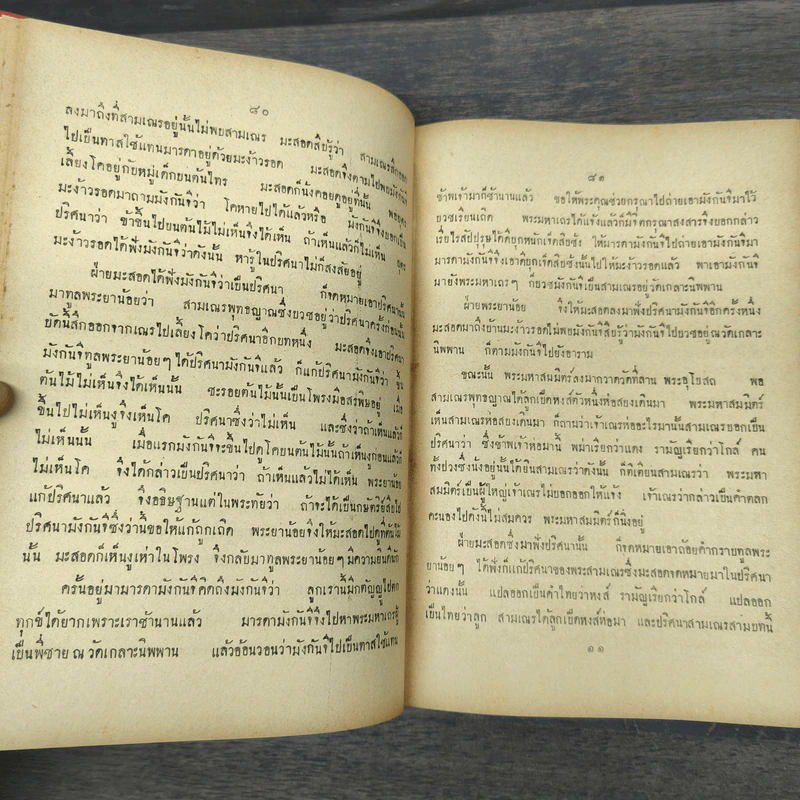 ๘๐
ลงมาถึงที่สามเณรอยู่นั้นไม่พบสามเณร มะสอดสืบรู้ว่า สามเณรสึกออก
ไปเป็นทาสใช้แทนมารดาอยู่ด้วยมะง้าวรอด มะสอดจึงตามไปพบมังกันจี
เลี้ยงโคอยู่กับหมู่เด็กบนต้นไทร มะสอดก็นั่งคอยดูอยู่ที่นั้น พอบุตร
มะง้าวรอดมาถามมังกันจีว่า โคหายไปได้แล้วหรือ มังกันจีจึงบอกเป็น
ปริศนาว่า ข้าขึ้นไปบนต้นไม้ไม่เห็นจึงได้เห็น ถ้าเห็นแล้วก็ไม่เห็น บุตร
มะง้าวรอดได้ฟังมังกันจีว่าดังนั้น หารู้ในปริศนาไม่ก็สงสัยอยู่
ฝ่ายมะสอดได้ฟังมังกันจีว่าเป็นปริศนา ก็จดหมายเอาปริศนานั้น
มาทูลพระยาน้อยว่า สามเณรพุทธญาณซึ่งบวชอยู่ว่าปริศนาครั้งก่อนนั้น
บัดนี้สึกออกจากเณรไปเลี้ยงโคว่าปริศนาอีกบทหนึ่ง มะสอดจึงเอาปริศนา
มังกันจีทูลพระยาน้อยๆ ได้ปริศนามังกันจีแล้ว ก็แก้ปริศนามังกันจีว่า ขึ้น
ต้นไม้ไม่เห็นจึงได้เห็นนั้น ชะรอยต้นไม้นั้นเป็นโพรงมีอสรพิษอยู่ เมื่อ
ขึ้นไปไม่เห็นงูจึงเห็นโค ปริศนาซึ่งว่าไม่เห็น และซึ่งว่าถ้าเห็นแล้วก็
ไม่เห็นนั้น เมื่อแรกมังกันจีจะขึ้นไปดูโคบนต้นไม้นั้นถ้าเห็นงูก่อนแล้วก็
ไม่เห็นโค จึงได้กล่าวเป็นปริศนาว่า ถ้าเห็นแล้วไม่ได้เห็น พระยาน้อย
แก้ปริศนาแล้ว จึงอธิษฐานแต่ในพระทัยว่า ถ้าจะได้เป็นกษัตริย์สืบไป
ปริศนามังกันจีซึ่งว่านี้ขอให้แก้ถูกเถิด พระยาน้อยจึงให้มะสอดไปดูที่ต้นไม้
นั้น มะสอดก็เห็นงูเห่าในโพรง จึงกลับมาทูลพระยาน้อยๆ มีความยินดีนัก
ครั้นอยู่มามารดามังกันจีคิดถึงมังกันจีว่า ลูกเรานี้มีกตัญญูไปตก
ทุกข์ได้ยากเพราะเราช้านานแล้ว มารดามังกันจีจึงไปหาพระมหาเถรผู้
เป็นพี่ชาย ณ วัดเกลาะนิพพาน แล้วอ้อนวอนว่ามังกันจีไปเป็นทาสใช้แทน
๘๑
ข้าพเจ้ามาก็ช้านานแล้ว ขอให้พระคุณช่วยกรุณาไปถ่ายเอามังกันจีมาไว้
บวชเรียนเถิด พระมหาเถรได้แจ้งแล้วก็มีจิตกรุณาสงสารจึงบอกกล่าว
เรี่ยไรสัปปุรุษได้ดีบุกหนักเจ็ดสิบชั่ง ให้มารดามังกันจีไปถ่ายเอามังกันจีมา
มารดามังกันจีจึงเอาดีบุกเจ็ดสิบชั่งนั้นไปให้มะง้าวรอดแล้ว พาเอามังกันจี
มายังพระมหาเถรๆ ก็บวชมังกันจีเป็นสามเณรอยู่วัดเกลาะนิพพาน
ฝ่ายพระยาน้อย จึงให้มะสอดลงมาฟังปริศนามังกันจีอีกครั้งหนึ่ง
มะสอดมาถึงบ้านมะง้าวรอดไม่พบมังกันจีสืบรู้ว่ามังกันจีไปบวชอยู่ ณ วัดเกลาะ
นิพพาน ก็ตามมังกันจีไปยังอาราม
ขณะนั้น พระมหาสมมิตร์ลงมากวาดวัดที่ลาน พระอุโบสถ พอ
สามเณรพุทธญาณได้ลูกเป็ดหงส์ตัวหนึ่งห่อสบงเดินมา พระมหาสมมิตร์
เห็นสามเณรห่อสบงเดินมา ก็ถามว่าเจ้าเณรห่ออะไรมานั้นสามเณรบอกเป็น
ปริศนาว่า ซึ่งข้าพเจ้าห่อมานี้ พม่าเรียกว่าแดง รามัญเรียกว่าโกล์ คน
ทั้งปวงซึ่งนั่งอยู่นั้นได้ยินสามเณรว่าดังนั้น ก็ติเตียนสามเณรว่า พระมหา
สมมิตร์เป็นผู้ใหญ่เจ้าเณรไม่บอกออกให้แจ้ง เจ้าเณรว่ากล่าวเป็นคำตลก
คะนองไปดังนี้ไม่สมควร พระมหาสมมิตร์ก็นิ่งอยู่
ฝ่ายมะสอดซึ่งมาฟังปริศนานั้น ก็จดหมายเอาถ้อยคำกราบทูลพระ
ยาน้อยๆ ได้ฟังก็แก้ปริศนาของพระสามเณรซึ่งมะสอดจดหมายมาในปริศนา
ว่าแดงนั้น แปลออกเป็นคำไทยว่าหงส์ รามัญเรียกว่าโกล์ แปลออก
เป็นไทยว่าลูก สามเณรได้ลูกเป็ดหงส์ห่อมา และปริศนาสามเณรสามบทนี้
๑๑